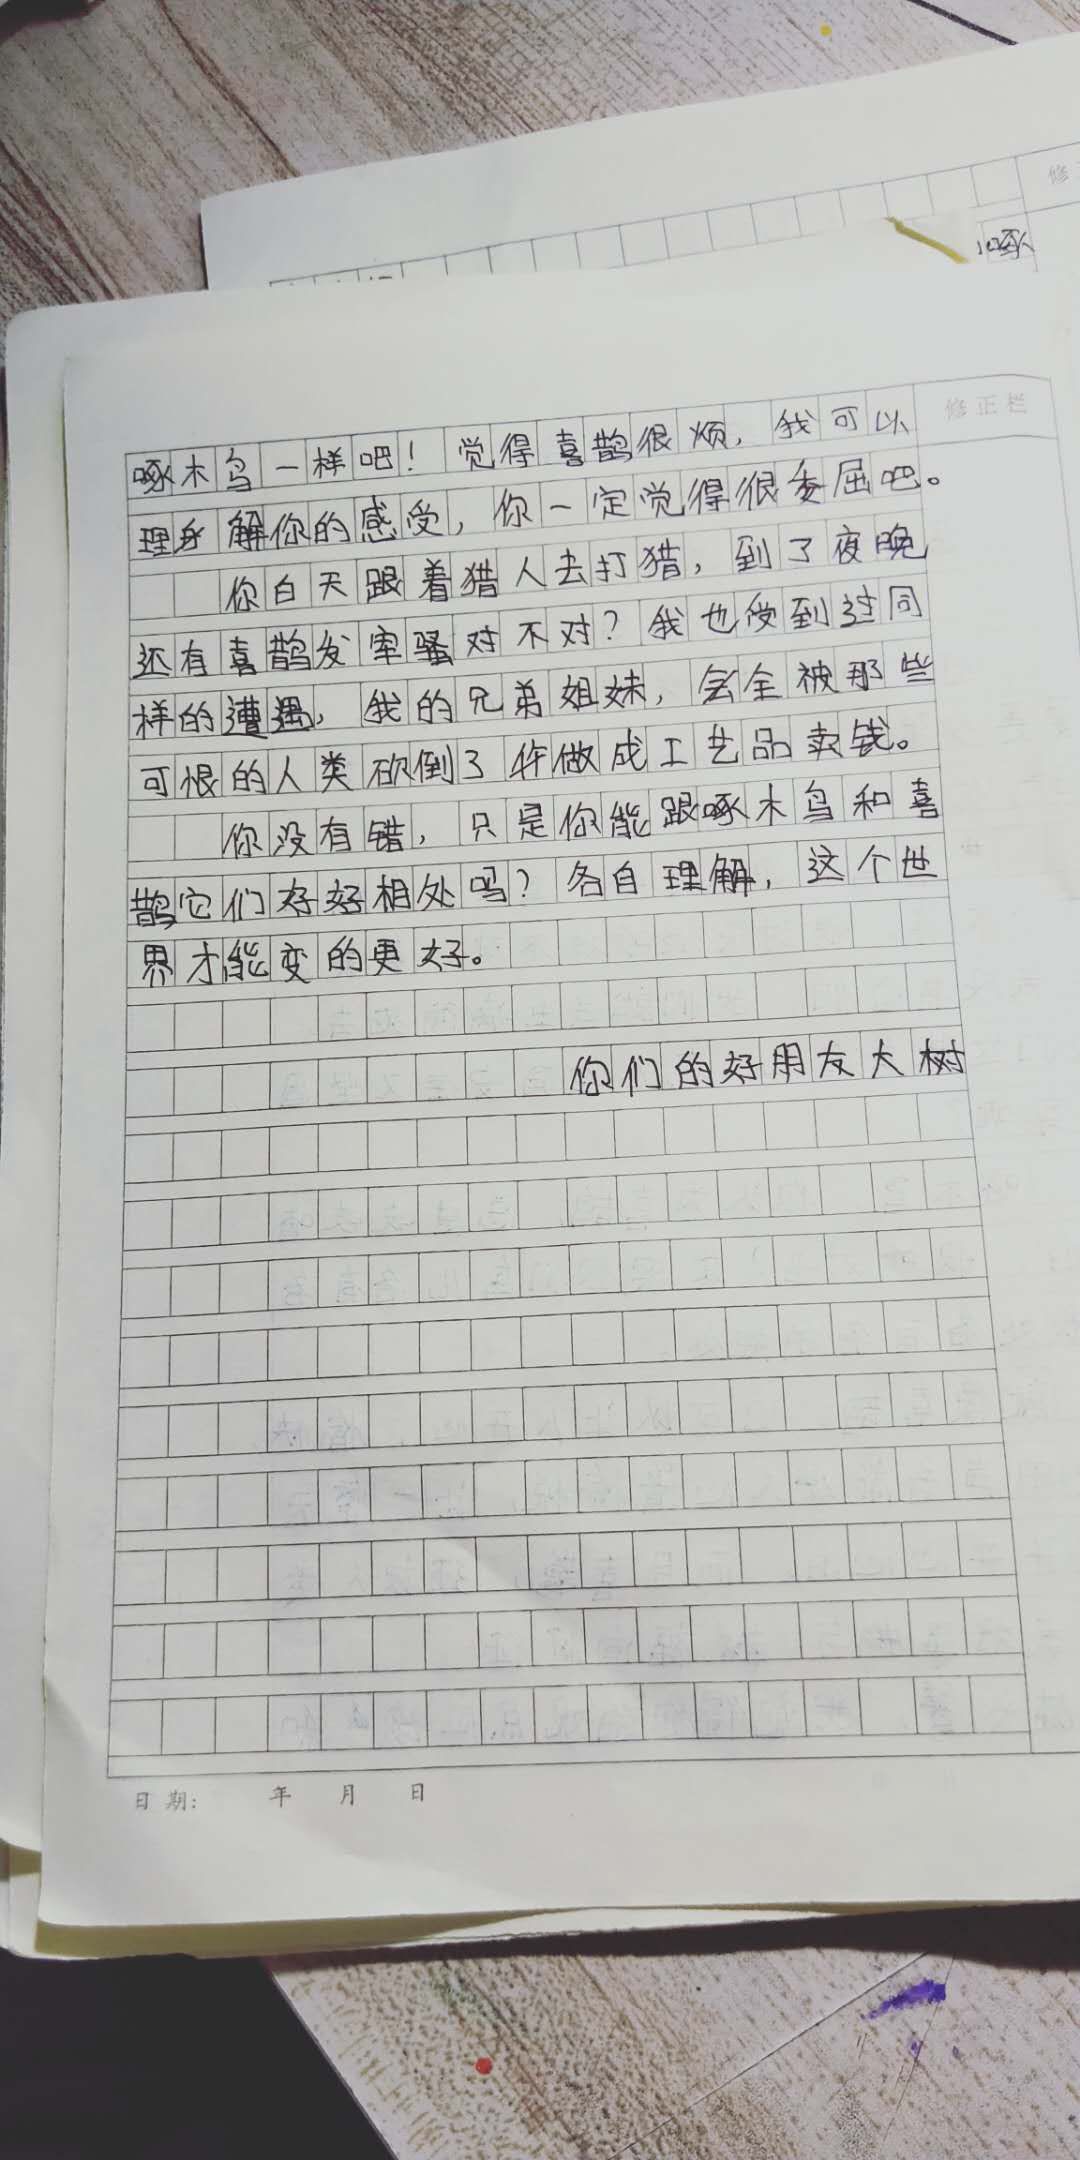 修
啄
修正栏
啄木鸟一样吧！觉得喜鹊很烦，我可以
理解你的感受，你一定觉得很委屈吧。
你白天跟着猎人去打猎，到了夜晚
还有喜鹊发牢骚对不对？我也受到过同
样的遭遇，我的兄弟姐妹，会全被那些
可恨的人类砍倒了做成工艺品卖钱。
你没有错，只是你能跟啄木鸟和喜
鹊它们好好相处吗？各自理解，这个世
界才能变的更好。
你们的好朋友大树
日期： 年 月 日